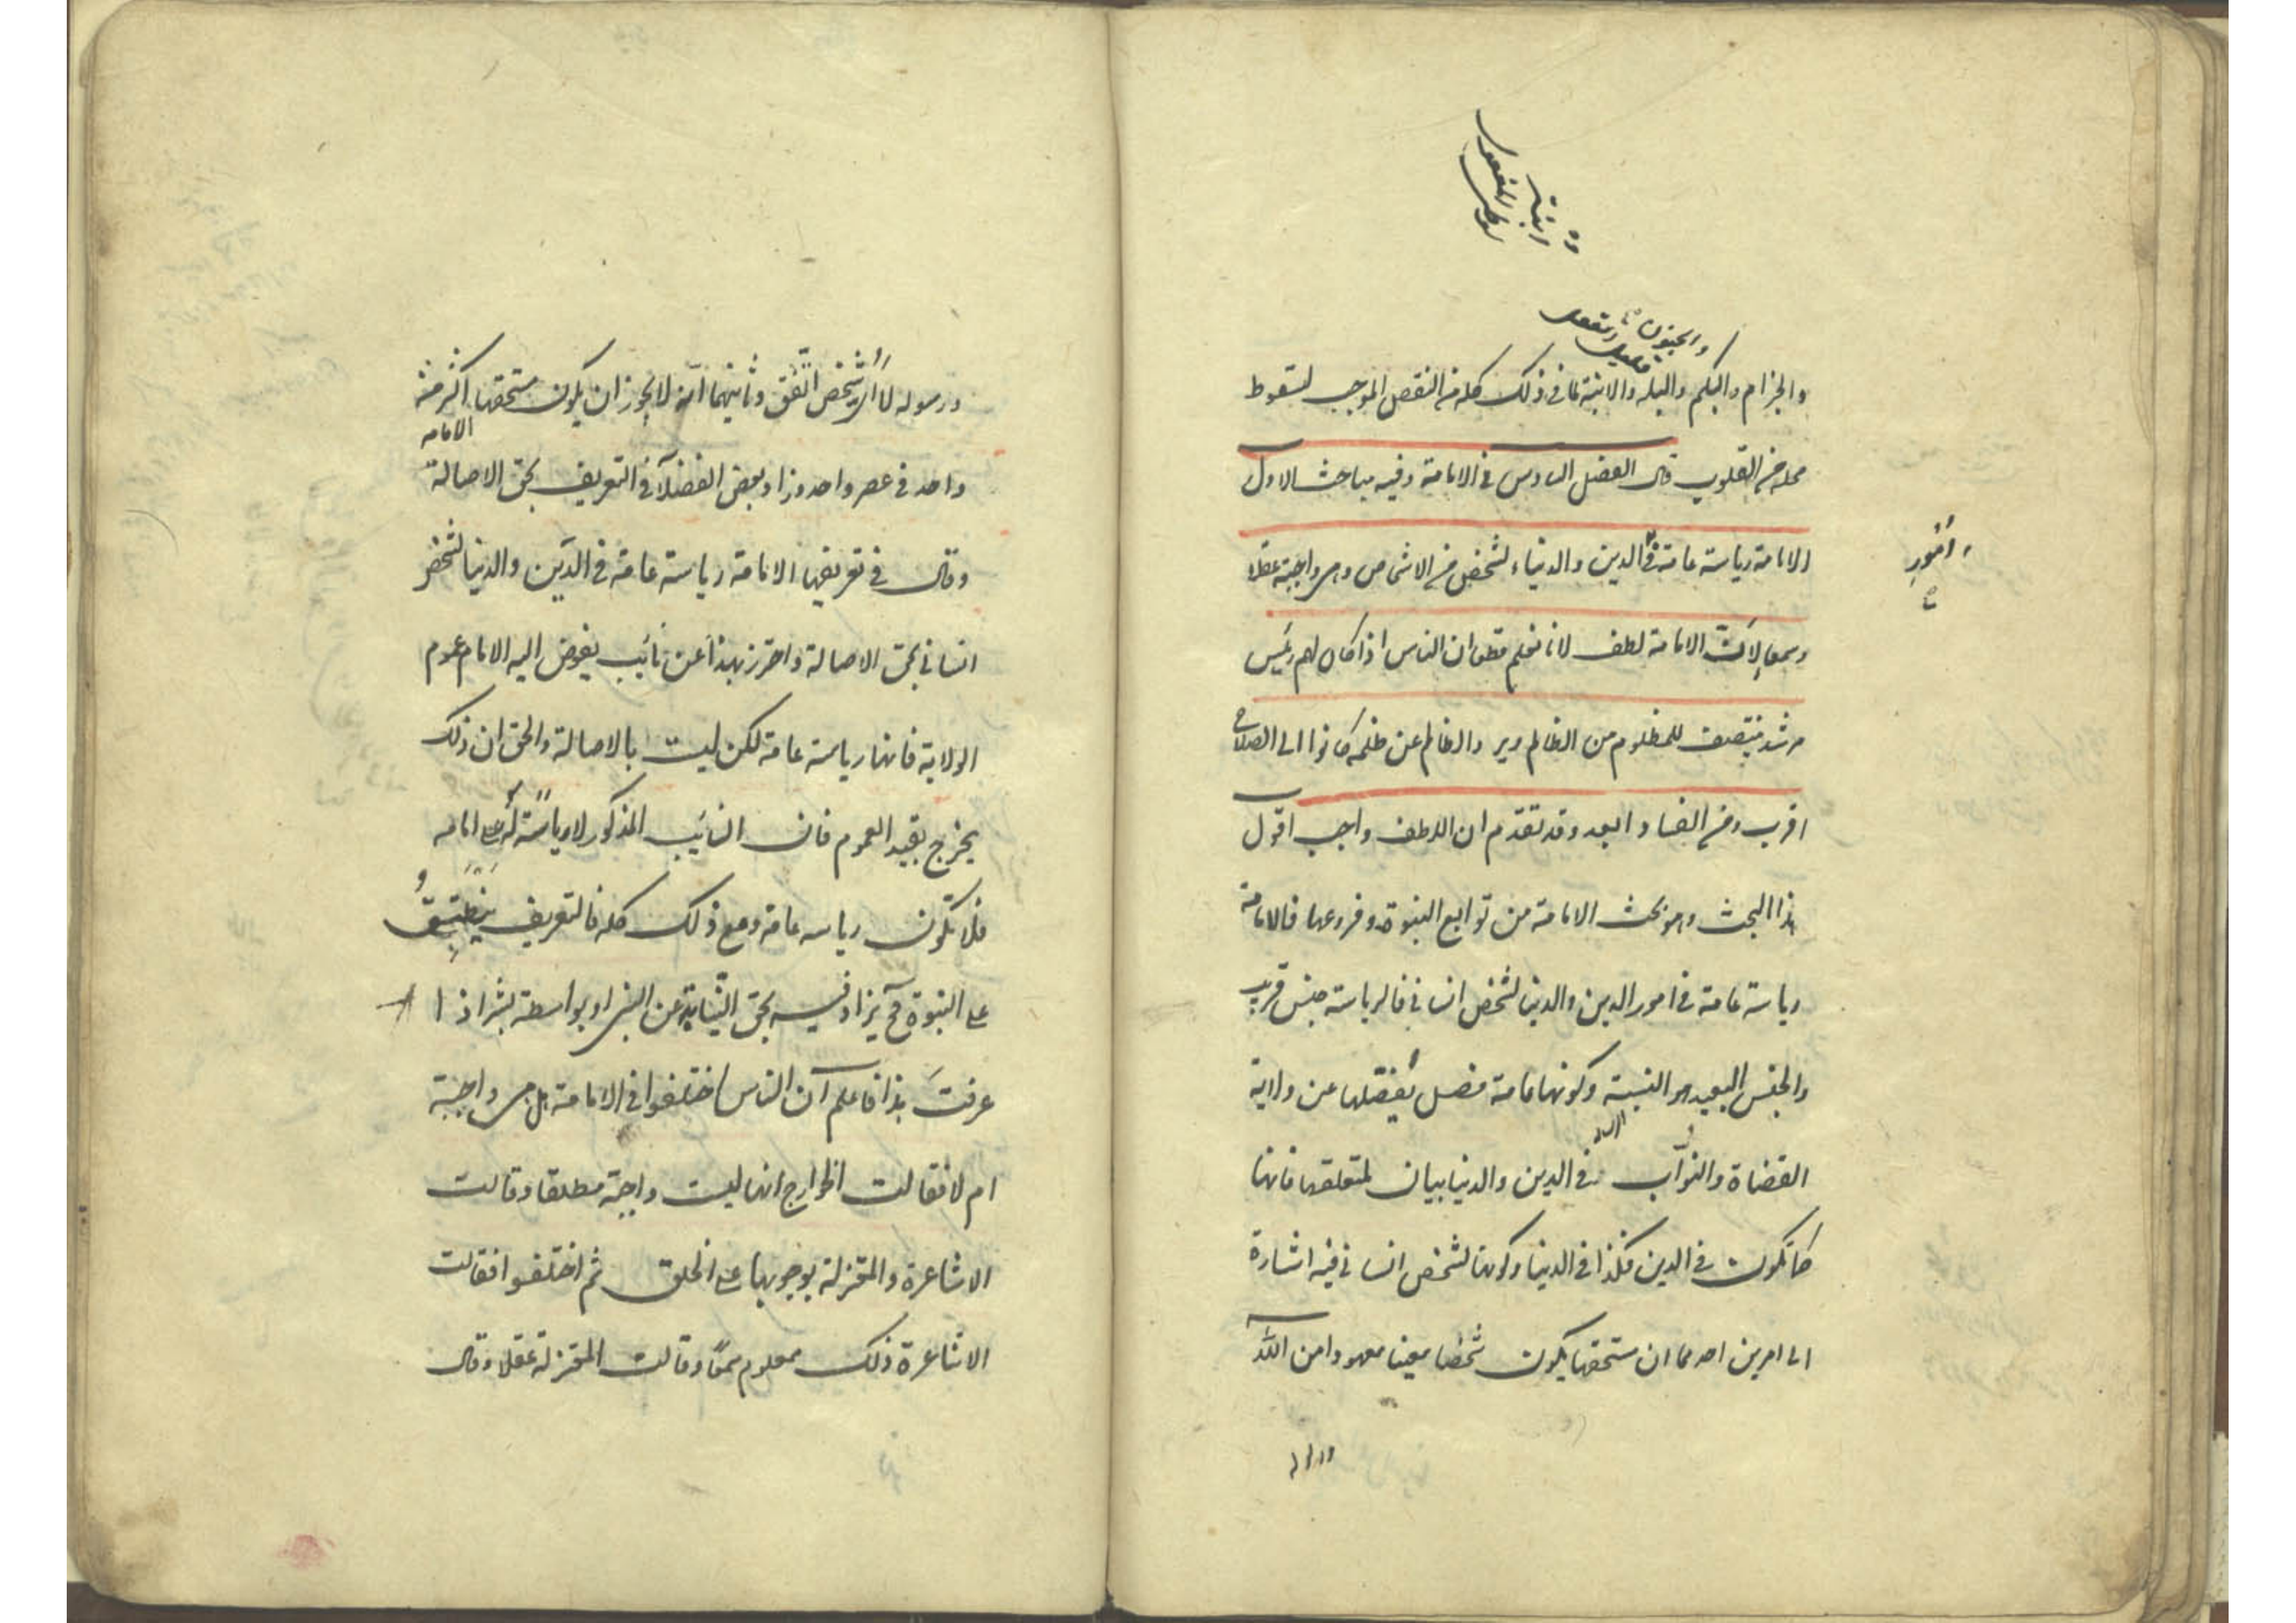 والجنون
والجذام والبكم والبله والابنة لما في ذلك كله من النقص الموجب لسقوط
محله من القلوب قال الفصل السادس في الامامة وفيه مباحث الاول
الامامة رياسة عامة في الدين والدنيا لشخص من الاشخاص وهى واجبة عقلا
امور
وسمعا لان الامامة لطف لانا نعلم قطعا ان الناس اذا كان لهم رئيس
مرشد ينتصف للمظلوم من الظالم ويردا الظالم عن ظلمه كانوا الى الصلاح
اقرب ومن الفساد ابعد وقد تقدم ان اللطف واجب اقول
هذا البحث وهو بحث الامامة من توابع النبوة وفروعها فالامامة
رياسة عامة في امور الدين والدنيا لشخص انساني فالرياسة جنس قريب
والجنس البعيد هو النسبة وكونها عامة فصل يفصلها عن ولاية
القضاة والنواب في الدين والدنيا بيان لمتعلقها فانها
كما تكون في الدين فكذا في الدنيا وكونها لشخص انساني فيه اشارة
الى امرين احدهما ان مستحقها يكون شخصا معينا معهودا من الله
ورسوله لا اى شخص اتفق وثانيهما انه لا يجوز ان يكون مستحقها اكثر من
واحد في عصر واحد وزاد بعض الفضلاء في التعريف بحق الاصالة
الامامه
وقال في تعريفها الامامة رياسة عامة في الدين والدنيا لشخص
انساني بحق الاصالة واحترز بهذا عن نائب يفوض اليه الامام عموم
الولاية فانها رياسة عامة لكن ليست بالاصالة والحق ان ذلك
يخرج بقيد العموم فان النائب المذكور لا رياسة له على امامه
فلا تكون رياسه عامة ومع ذلك كله فالتعريف ينطبق
على النبوة فح يزاد فيه بحق النيابة عن النبى او بواسطة بشر اذا
عرفت هذا فاعلم ان الناس اختلفوا في الامامة هل هى واجبة
ام لا فقالت الخوارج انها ليست واجبة مطلقا وقالت
الاشاعرة والمعتزلة بوجوبها على الخلق ثم اختلفوا فقالت
الاشاعرة ذلك معلوم سمعا وقالت المعتزلة عقلا وقال